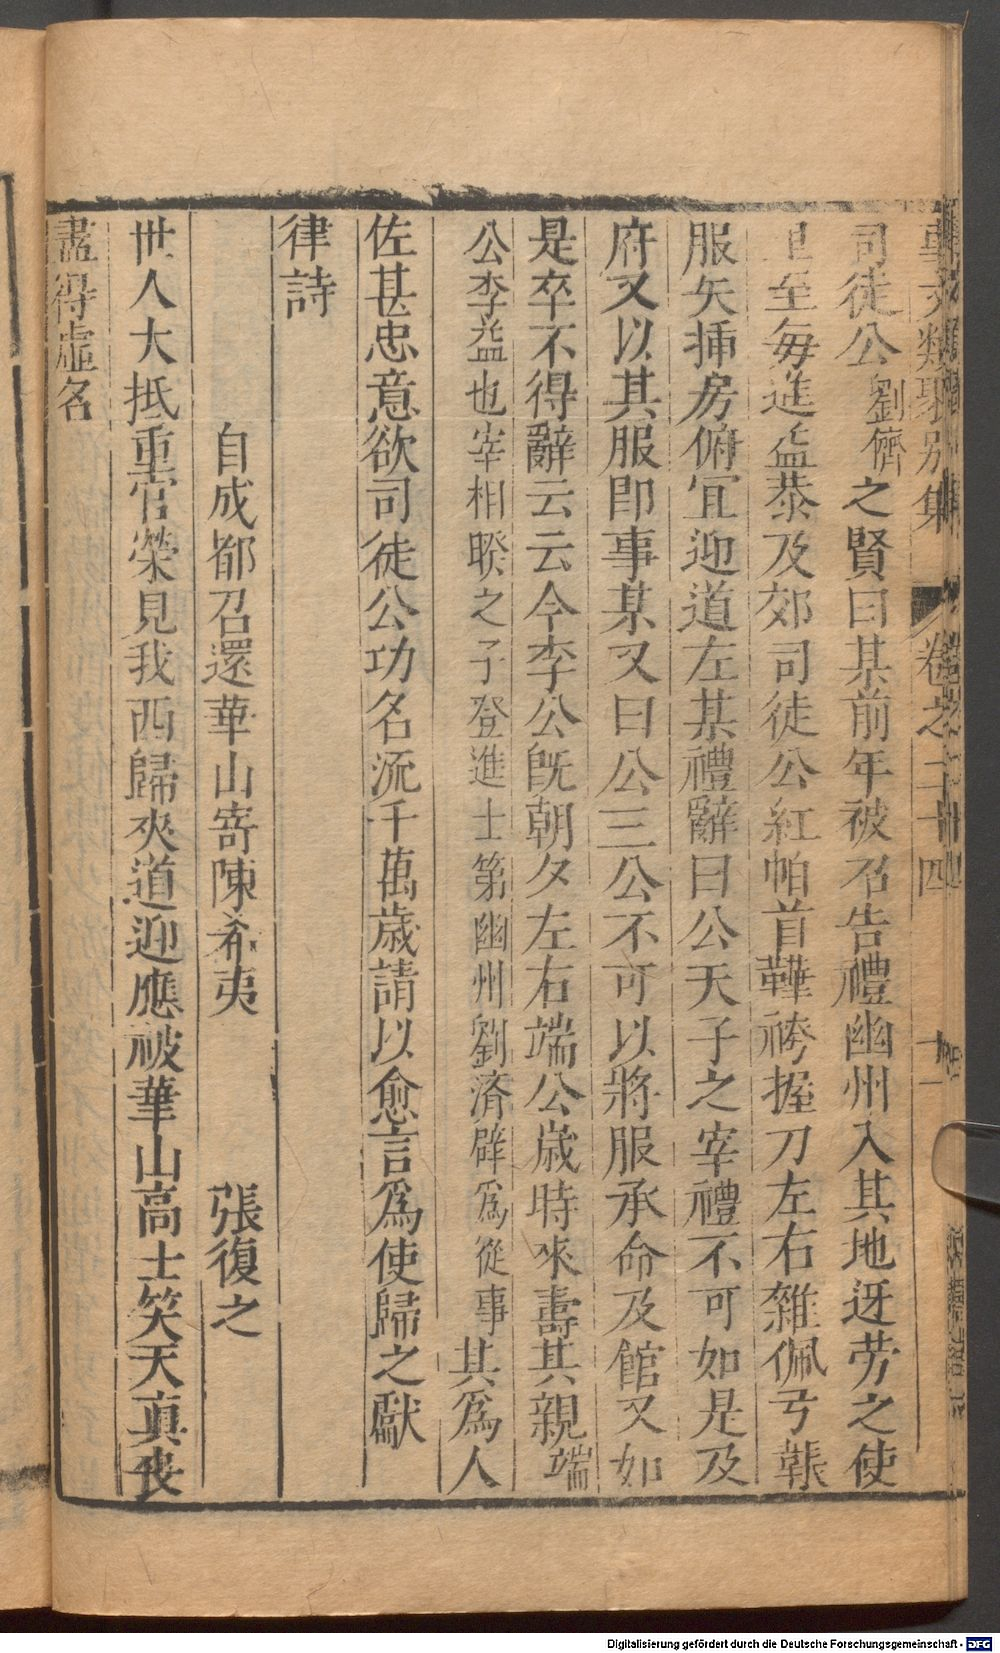 事文類聚別集 卷之二十四 十一
司徒公劉儕之賢曰某前年被召告禮幽州入其地迓勞之使
且至每進益恭及郊司徒公紅帕首鞾袴握刀左右雜佩弓韔
服矢揷房俯宜迎道左某禮辭曰公天子之宰禮不可如是及
府又以其服卽事某又曰公三公不可以將服承命及館又如
是卒不得辭云云今李公旣朝夕左右端公歲時來壽其親端
公李益也宰相睽之子登進士第幽州劉済辟爲從事其爲人
佐甚忠意欲司徒公功名流千萬歲請以愈言爲使歸之獻
律詩
自成都召還華山寄陳希夷 張復之
世人大抵重官榮見我西歸夾道迎應被華山高士笑天真喪
盡得虛名
Digitalisierung gefördert durch die Deutsche Forschungsgemeinschaft - DFG